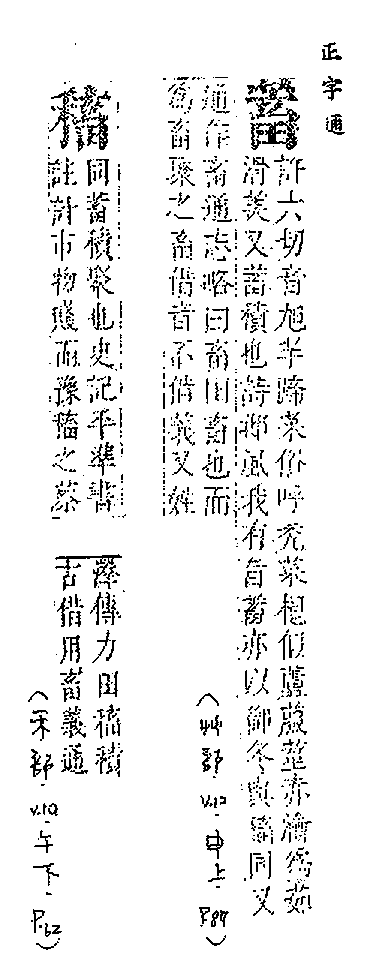 正字通
蓄
許六切音旭羊蹄菜俗呼禿菜根似蘆菔莖亦瀹為茹
滑美又蓄積也詩邶風我有旨蓄亦以御冬與稸同又
通作畜通志略曰畜田畜也而
為畜聚之畜借音不借義又姓
(艸部．V.12．申上．P.87)
稸
同蓄積聚也史記平準書
註計市物賤而豫稸之蔡
澤傳力田稸積
古借用畜義通
(禾部．V.10．午下．P.62)